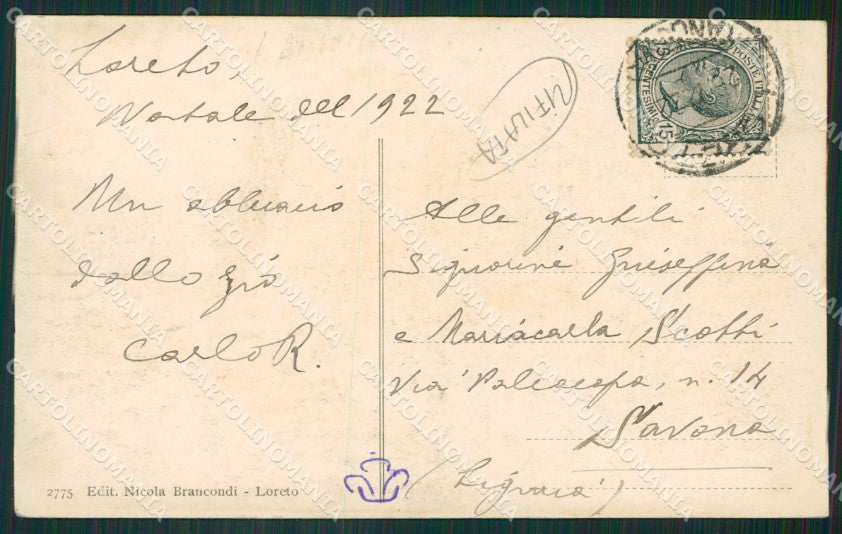 Loreto,
Natale del 1922
Un abbraccio
dallo zio
Carlo R.
UTILATA
POSTE ITALIANE
CENTESIMI 15
Alle gentili
Signorine Giuseppina
e Mariacarla Scotti
Via Paleocapa, n. 14
Savona
(Liguria)
2775 Edit. Nicola Brancondi - Loreto
CARTOLINOMANIA